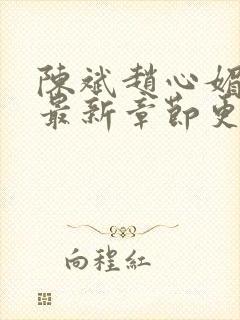 陳斌趙心媚
最新章節更
向程紅